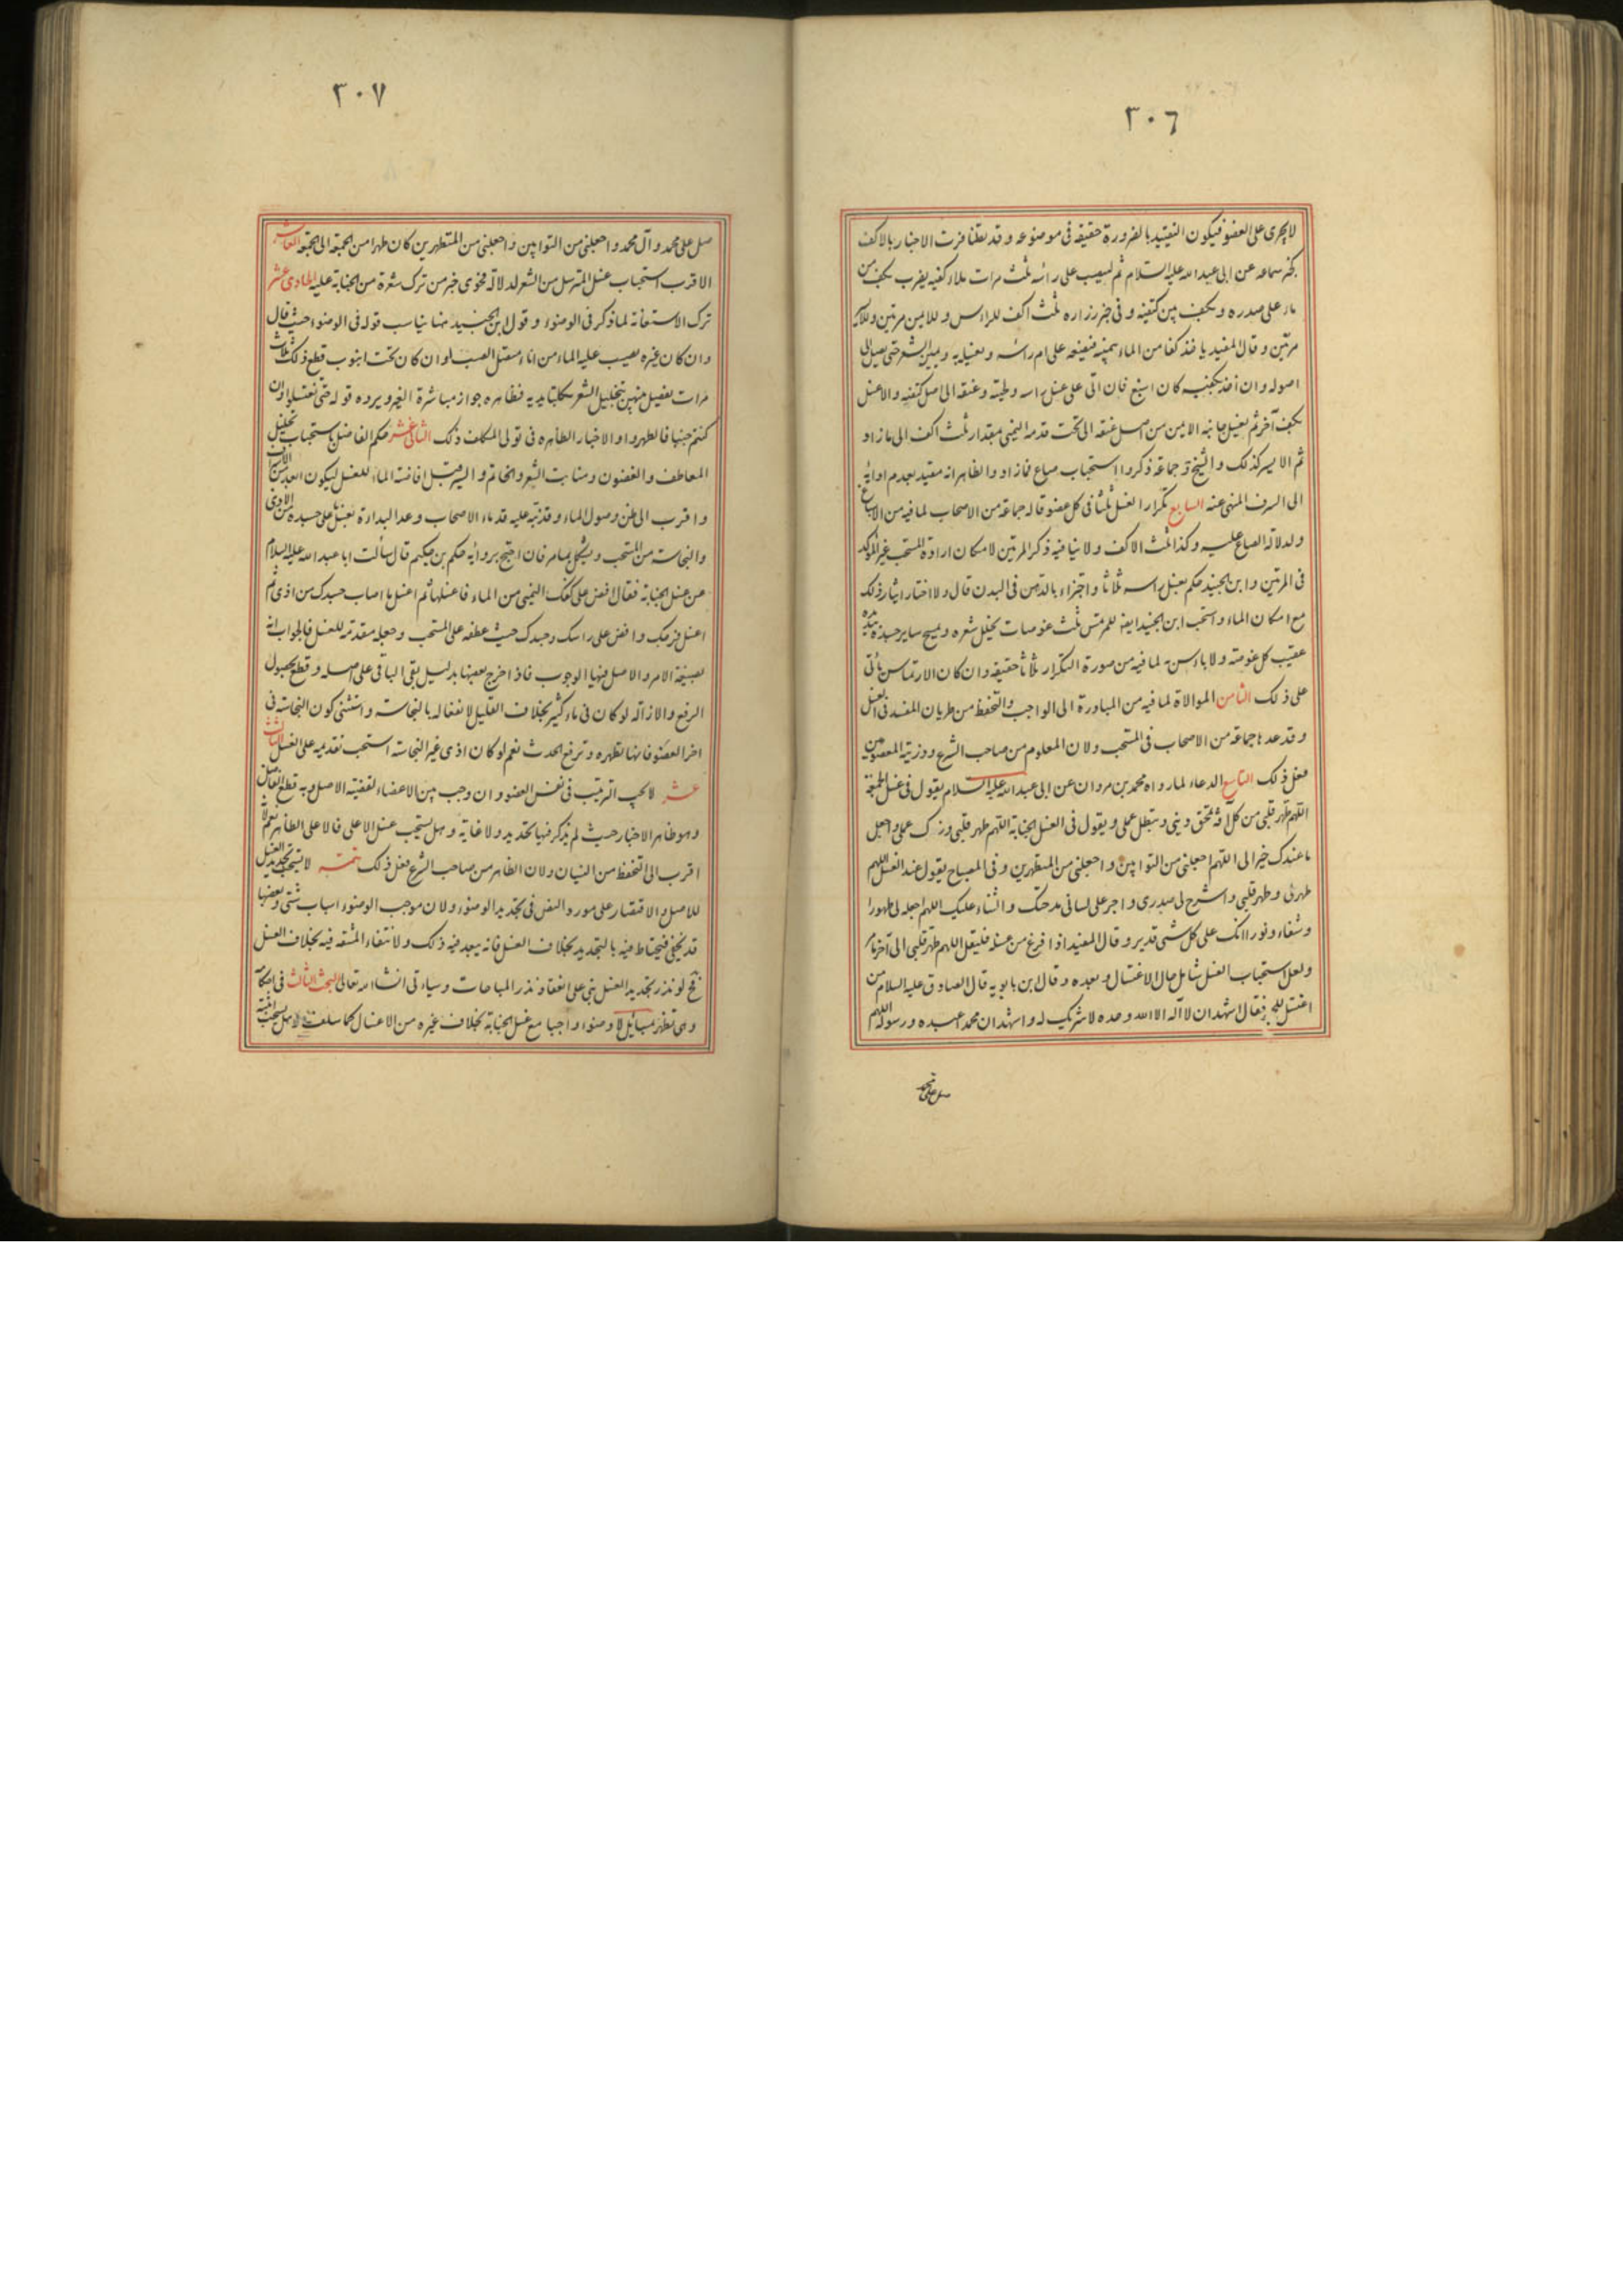 ٣٠٦
لا يجرى على العضو فيكون التقييد بالضرورة حقيقة فى موضوعه وقد تظافرت الاخبار بالاكف
كخبر سماعة عن ابى عبد الله عليه السلام ثم ليصب على راسه ثلث مرات ملاء كفيه يضرب بكف من
ماء على صدره وبكف بين كتفيه وفى خبر زرارة ثلث اكف للراس وللايمن مرتين وللايسر
مرتين وقال المفيد ياخذ كفا من الماء بيمينه فيضعه على ام راسه ويغسله به ويميز الشعر حتى يصل الى
اصوله وان اخذ بكفيه كان اسبغ فان اتى على غسل راسه ولحيته وعنقه الى اصل كتفيه والا غسل
بكف آخر ثم يغسل جانبه الايمن من اصل عنقه الى تحت قدمه اليمنى بمقدار ثلث اكف الى ما زاد
ثم الايسر كذلك والشيخ وجماعة ذكروا استحباب صاع فما زاد والظاهر انه مقيد بعدم ادائه
الى السرف المنهى عنه السابع تكرار الغسل ثلثا فى كل عضو قاله جماعة من الاصحاب لما فيه من الاسباغ
ولدلالة الصاع عليه وكذا ثلث الاكف ولا ينافيه ذكر المرتين لامكان ارادة المستحب غير المؤكد
فى المرتين وابن الجنيد حكم بغسل راسه ثلاثا واجتزاء بالدهن فى البدن قال ولا اختار ايثار ذلك
مع امكان الماء واستحب ابن الجنيد ايضا للمرتمس ثلث غوصات يخلل شعره ويمسح ساير جسده بيديه
عقيب كل غوصة ولا باس به لما فيه من صورة التكرار ثلاثا حقيقة وان كان الارتماس ياتى
على ذلك الثامن الموالاة لما فيه من المبادرة الى الواجب والتحفظ من طريان المفسد فى الغسل
وقد عدها جماعة من الاصحاب فى المستحب ولان المعلوم من صاحب الشرع وذريته المعصومين
فعل ذلك التاسع الدعاء لما رواه محمد بن مروان عن ابى عبد الله عليه السلام يقول فى غسل الجمعة
اللهم طهر قلبى من كل آفة تمحق دينى وتبطل عملى ويقول فى الغسل الجنابة اللهم طهر قلبى وزك عملى واجعل
ما عندك خيرا لى اللهم اجعلنى من التوابين واجعلنى من المتطهرين وفى المصباح يقول عند الغسل اللهم
طهرنى وطهر قلبى واشرح لى صدرى واجر على لسانى مدحتك والثناء عليك اللهم اجعله لى طهورا
وشفاء ونورا انك على كل شى قدير وقال المفيد اذا فرغ من غسله فليقل اللهم طهر قلبى الى آخر ما
ولعل استحباب الغسل شامل حال الاغتسال وبعده وقال ابن بابويه قال الصادق عليه السلام من
اغتسل للجمعة فقال اشهد ان لا اله الا الله وحده لا شريك له واشهد ان محمد عبده ورسوله اللهم
صل على محمد
٣٠٧
صل على محمد وآل محمد واجعلنى من التوابين واجعلنى من المتطهرين كان طهرا من الجمعة الى الجمعة العاشر
الاقرب استحباب غسل المسترسل من الشعر لدلالة فحوى خبر من ترك شعرة من الجنابة عليه الحادى عشر
ترك الاستعانة لما ذكر فى الوضوء وقول ابن الجنيد هنا يناسب قوله فى الوضوء حيث قال
وان كان غيره يصب عليه الماء من اناء متصل الصب او ان كان تحت انبوب قطع ذلك ثلاث
مرات يفصل منهن بتخليل الشعر بكلتا يديه فظاهره جواز مباشرة الغير ويرده قوله حتى تغتسلوا وان
كنتم جنبا فاطهروا والاخبار الظاهرة فى تولى المكلف ذلك الثانى عشر حكم الفاضل باستحباب تخليل
المعاطف والغضون ومنابت الشعر والخاتم والسير قبل افاضة الماء للغسل ليكون ابعد من الاسراف
واقرب الى ظن وصول الماء وقد نبه عليه قدماء الاصحاب وعد البدارة بغسل ما على جسده من الاذى
والنجاسة من المستحب ويشكل بما مر فان احتج برواية حكم بن حكيم قال سالت ابا عبد الله عليه السلام
عن غسل الجنابة فقال افض على كفك اليمنى من الماء فاغسلها ثم اغسل ما اصاب جسدك من اذى ثم
اغسل فرجك وافض على راسك وجسدك حيث عطفه على المستحب وجعله مقدمة للغسل فالجواب انه
بصيغة الامر والاصل فيها الوجوب فاذا خرج بعضها بدليل بقى الباقى على اصله وقطع بحصول
الرفع والازالة لو كان فى ماء كثير بخلاف القليل لانفعاله بالنجاسة واستثنى كون النجاسة فى
اخر العضو فانها تطهره وترفع الحدث نعم لو كان اذى غير النجاسة استحب تقديمه على الغسل الثالث
عشر لا يجب الترتيب فى نفس العضو وان وجب بين الاعضاء لقضية الاصل وبه قطع الفاضل
وهو ظاهر الاخبار حيث لم يذكر فيها تحديد ولا غاية وهل يستحب غسل الاعلى فالاعلى الظاهر نعم لانه
اقرب الى التحفظ من النسيان ولان الظاهر من صاحب الشرع فعل ذلك تتمة لا يستحب تجديد الغسل
للاصل والاقتصار على مورد النص فى تجديد الوضوء ولان موجب الوضوء اسباب شتى وبعضها
قد يخفى فيحتاط فيه بالتجديد بخلاف الغسل فانه يبعد فيه ذلك ولانتفاء المشقة فيه بخلاف الغسل
فح لو نذر تجديد الغسل بنى على انعقاد نذر المباحات وسياتى انشاء الله تعالى البحث الثالث فى احكامه
وهى تظهر بمسائل لا وضوء واجبا مع غسل الجنابة بخلاف غيره من الاغسال كما سلف وهل يستحب